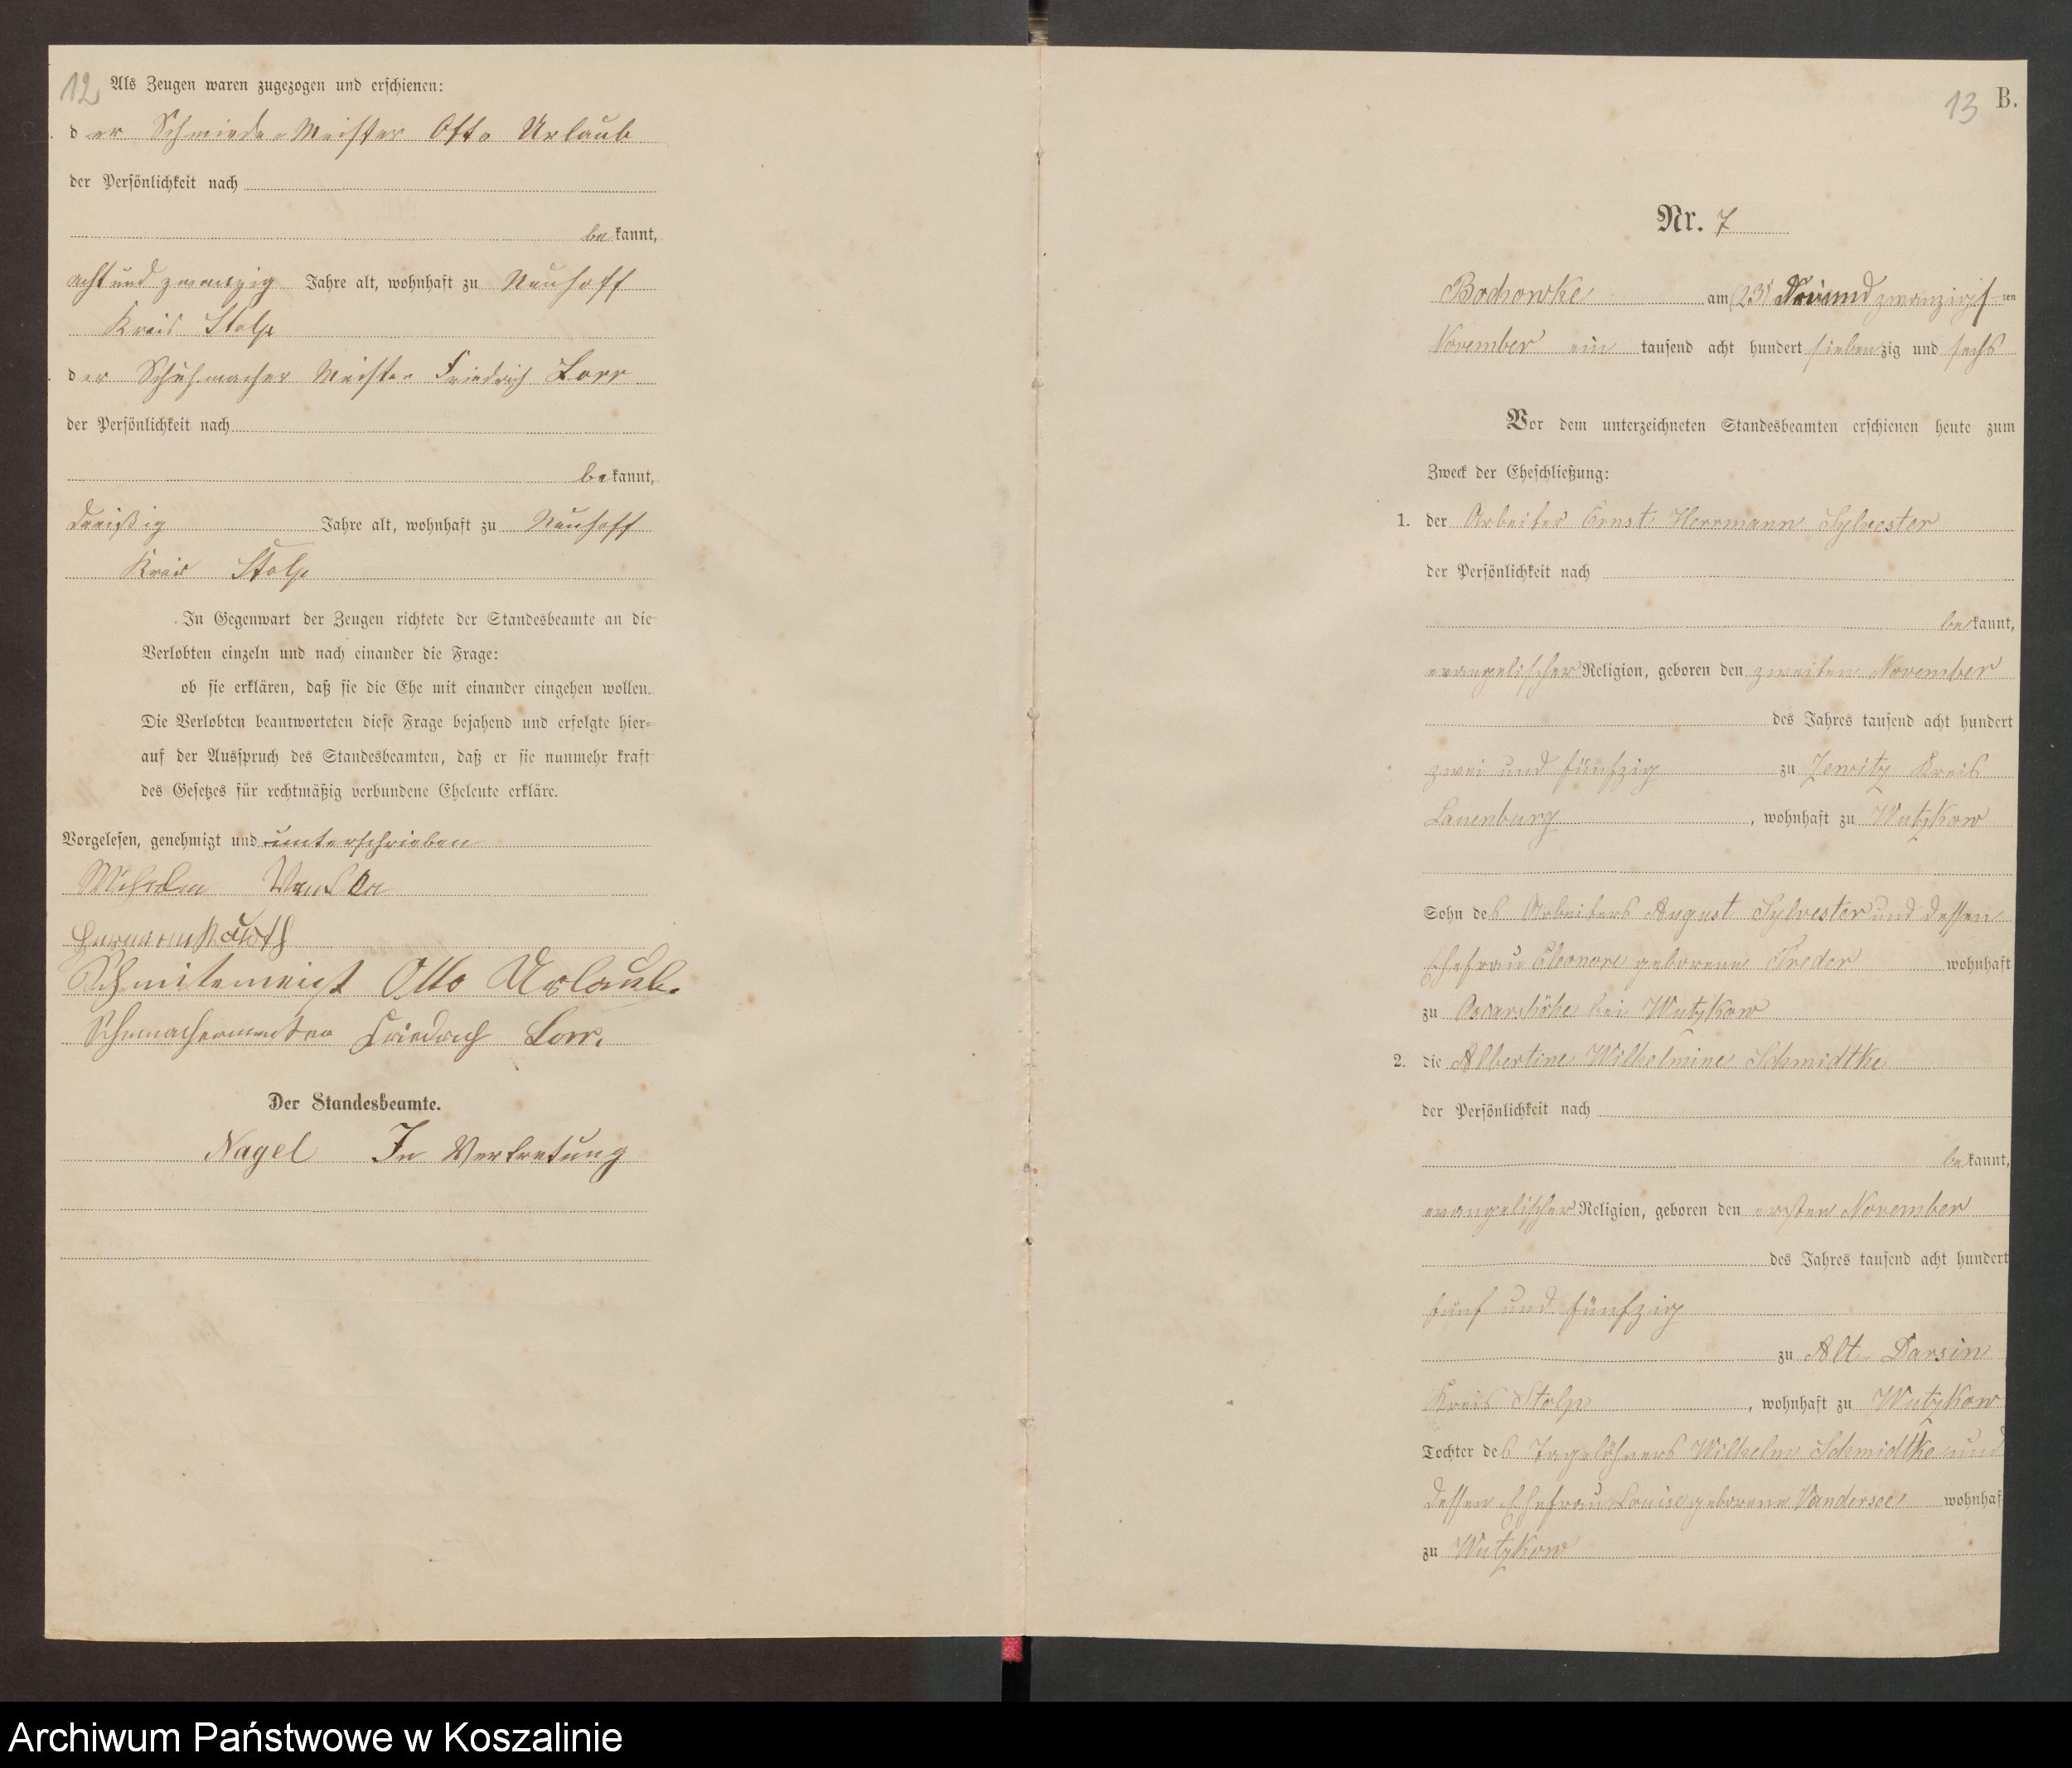 12
Als Zeugen waren zugezogen und erschienen:
der Schmiede-Meister Otto Urlaub
der Persönlichkeit nach
bekannt,
acht und zwanzig Jahre alt, wohnhaft zu Neuhoff
Kreis Stolp
der Schuhmacher Meister Friedrich Lorr
der Persönlichkeit nach
bekannt,
dreißig Jahre alt, wohnhaft zu Neuhoff
Kreis Stolp
In Gegenwart der Zeugen richtete der Standesbeamte an die
Verlobten einzeln und nach einander die Frage:
ob sie erklären, daß sie die Ehe mit einander eingehen wollen.
Die Verlobten beantworteten diese Frage bejahend und erfolgte hier-
auf der Ausspruch des Standesbeamten, daß er sie nunmehr kraft
des Gesetzes für rechtmäßig verbundene Eheleute erkläre.
Vorgelesen, genehmigt und unterschrieben
Otto Urlaub.
Friedrich Lorr.
Der Standesbeamte.
Nagel In Vertretung
13 B.
Nr. 7
Bochowke am 23 zwanzigsten
November ein tausend acht hundert siebenzig und sechs
Vor dem unterzeichneten Standesbeamten erschienen heute zum
Zweck der Eheschließung:
1. der Arbeiter Ernst Herrmann Sylvester
der Persönlichkeit nach
bekannt,
evangelischer Religion, geboren den zweiten November
des Jahres tausend acht hundert
zwei und fünfzig zu Zewitz Kreis
Lauenburg, wohnhaft zu Wutzkow
Sohn des Arbeiters August Sylvester und dessen
Ehefrau Eleonore geborene Treder wohnhaft
zu Oscarshöhe bei Wutzkow
2. die Albertine Wilhelmine Schmidtke
der Persönlichkeit nach
bekannt,
evangelischer Religion, geboren den ersten November
des Jahres tausend acht hundert
fünf und fünfzig
zu Alt-Darsin
Kreis Stolp, wohnhaft zu Wutzkow
Tochter des Tagelöhners Wilhelm Schmidtke und
dessen Ehefrau Louise geborene Vandersee wohnhaf
zu Wutzkow
Archiwum Państwowe w Koszalinie